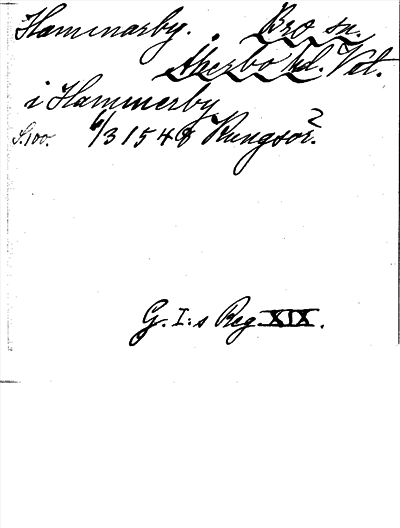 Hammarby. Bro sn.
Åkerbo hd. Vst.
i Hammerby
S. 100. 6/3 1548 Kungsör?
G. I:s Reg XIX.